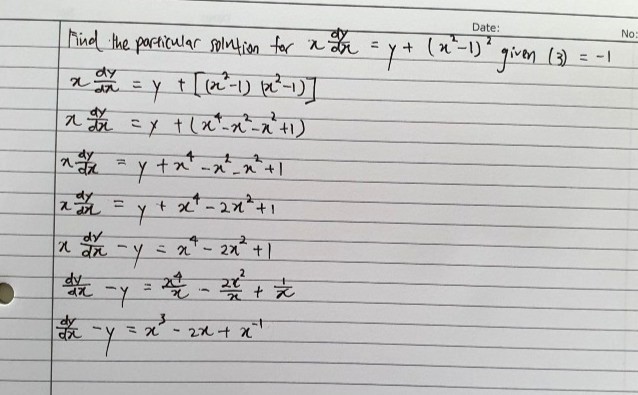 Date:
No:
Find the particular solution for x dy/dx = y + (x²-1)² given (3) = -1
x dy/dx = y + [(x²-1) (x²-1)]
x dy/dx = y + (x⁴-x²-x²+1)
x dy/dx = y + x⁴ - x² - x² + 1
x dy/dx = y + x⁴ - 2x² + 1
x dy/dx - y = x⁴ - 2x² + 1
dy/dx - y = x⁴/x - 2x²/x + 1/x
dy/dx - y = x³ - 2x + x⁻¹